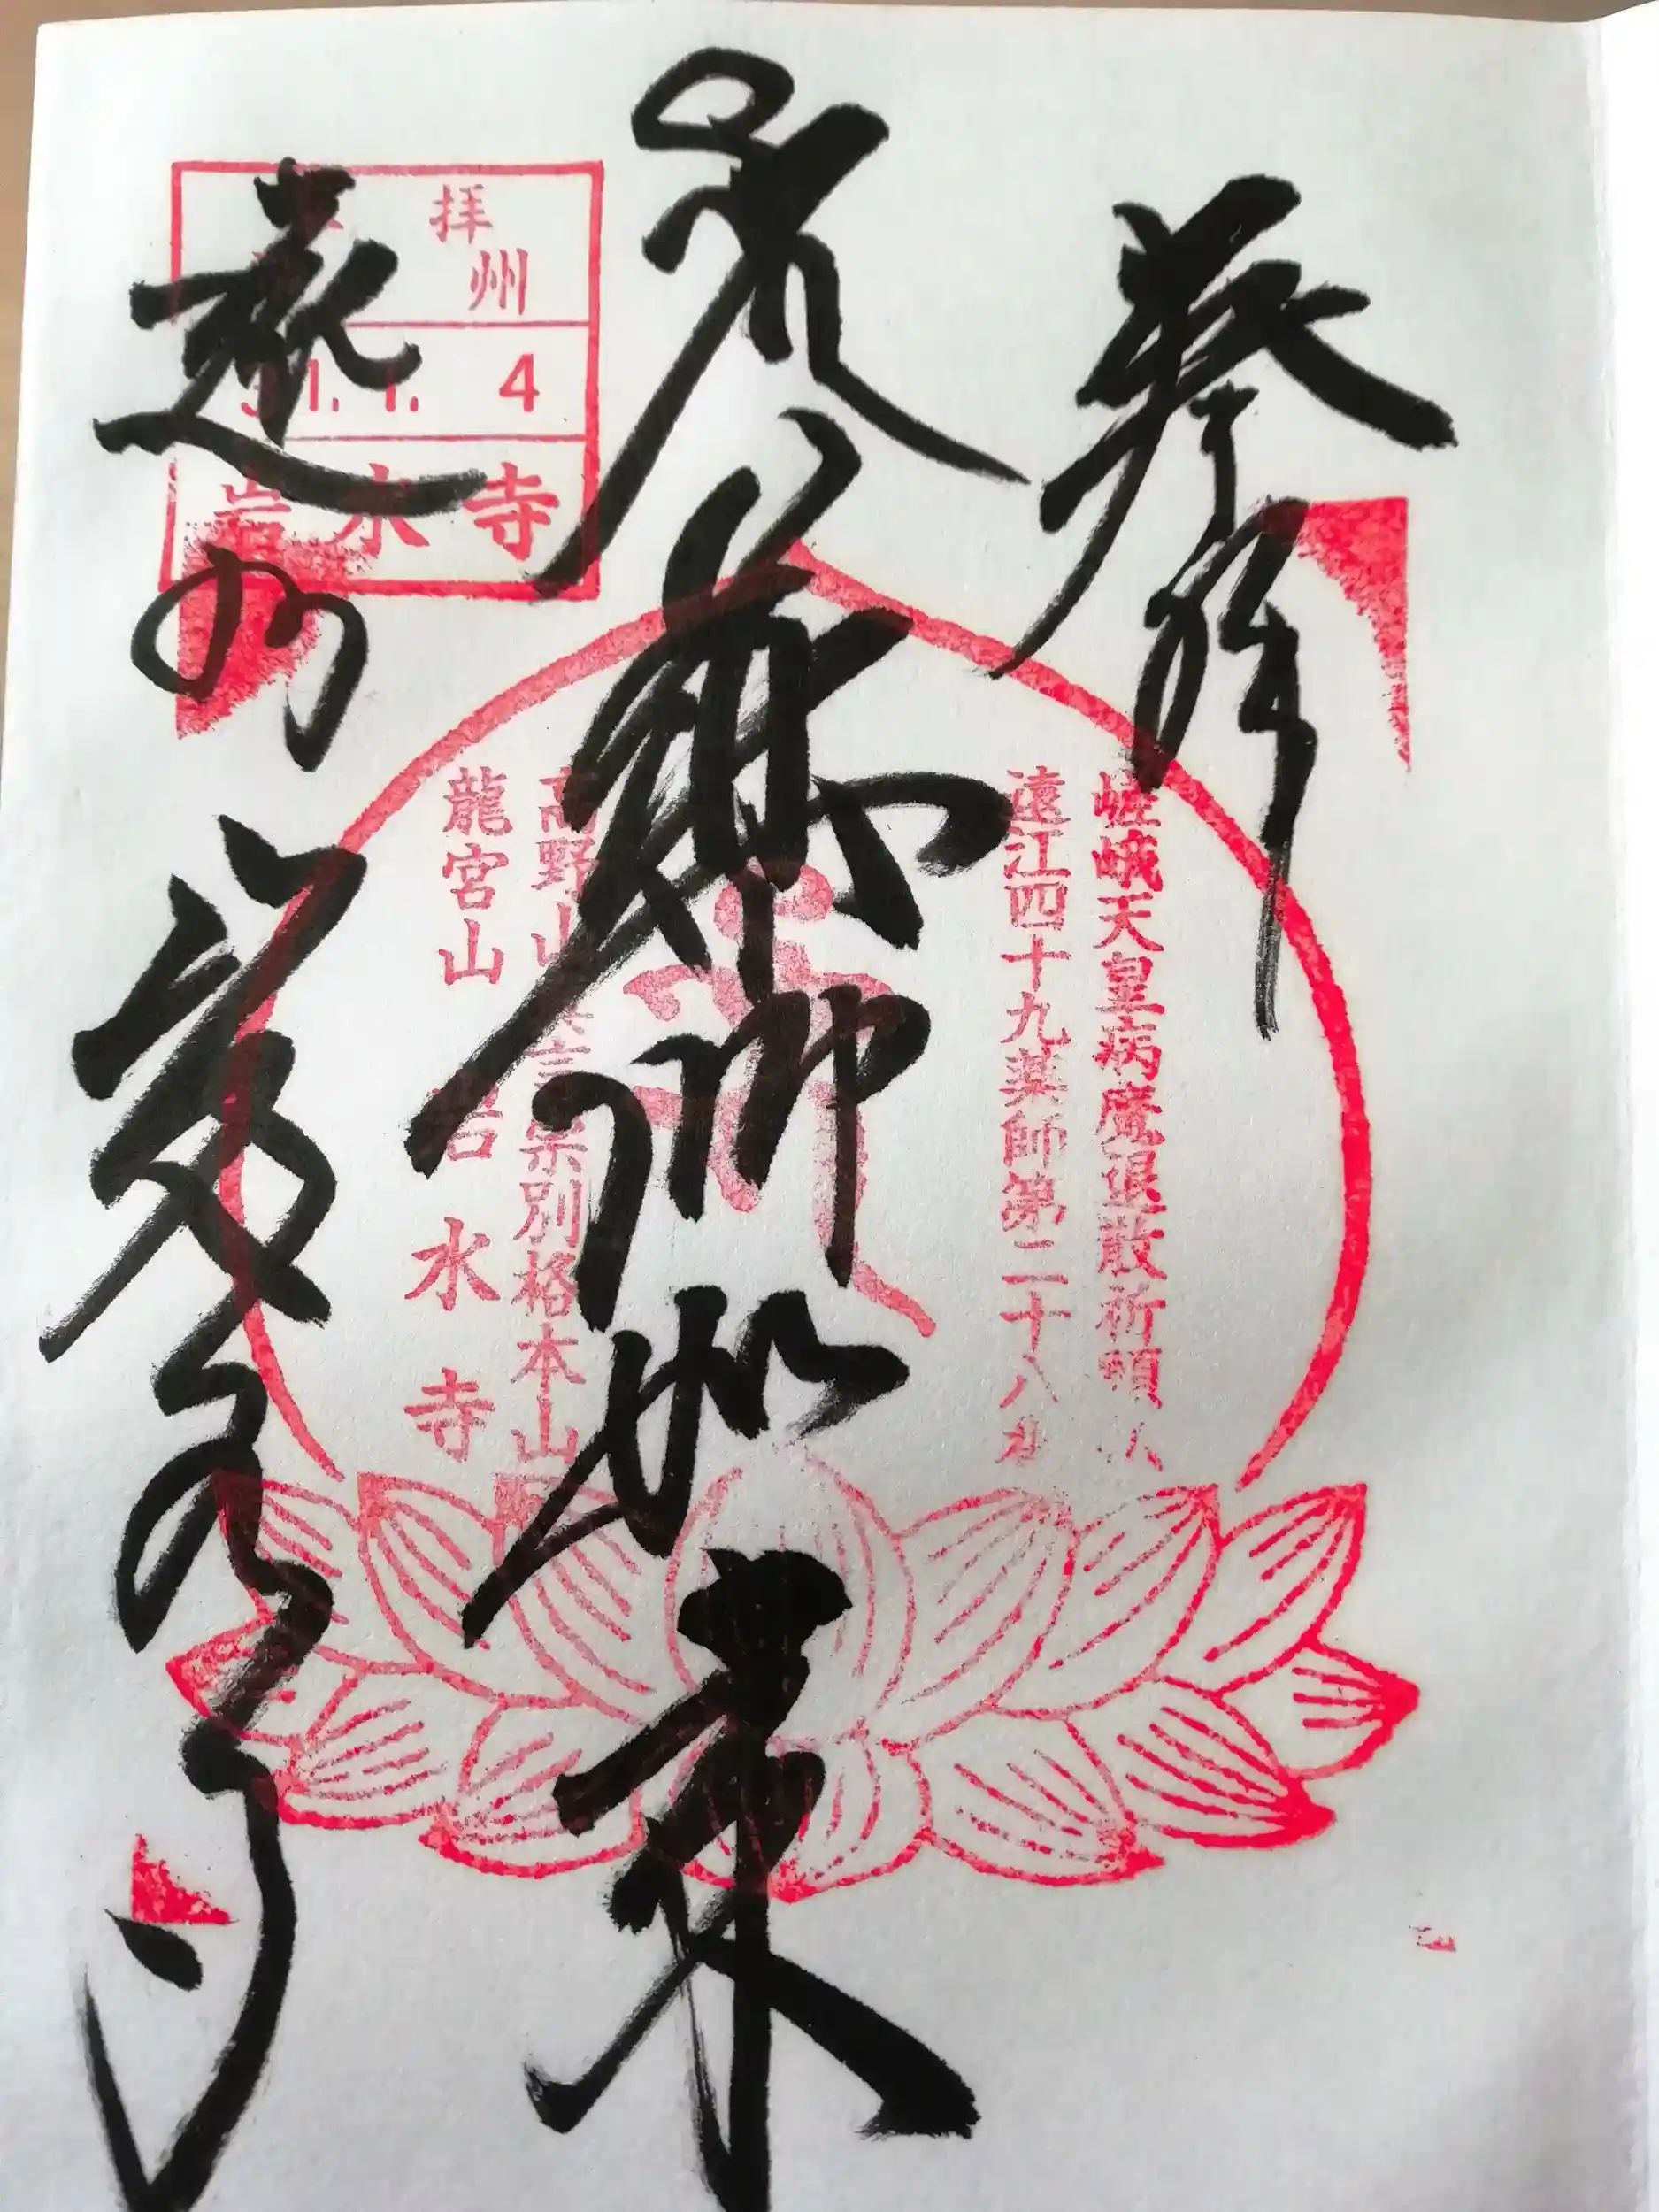 奉拝
嵯峨天皇病魔退散祈願
遠江四十九薬師第二十八
薬師如来
高野山真言宗別格本山
龍宮山 岩水寺
拝
州
1. 1. 4
岩水寺
遠州 岩水寺